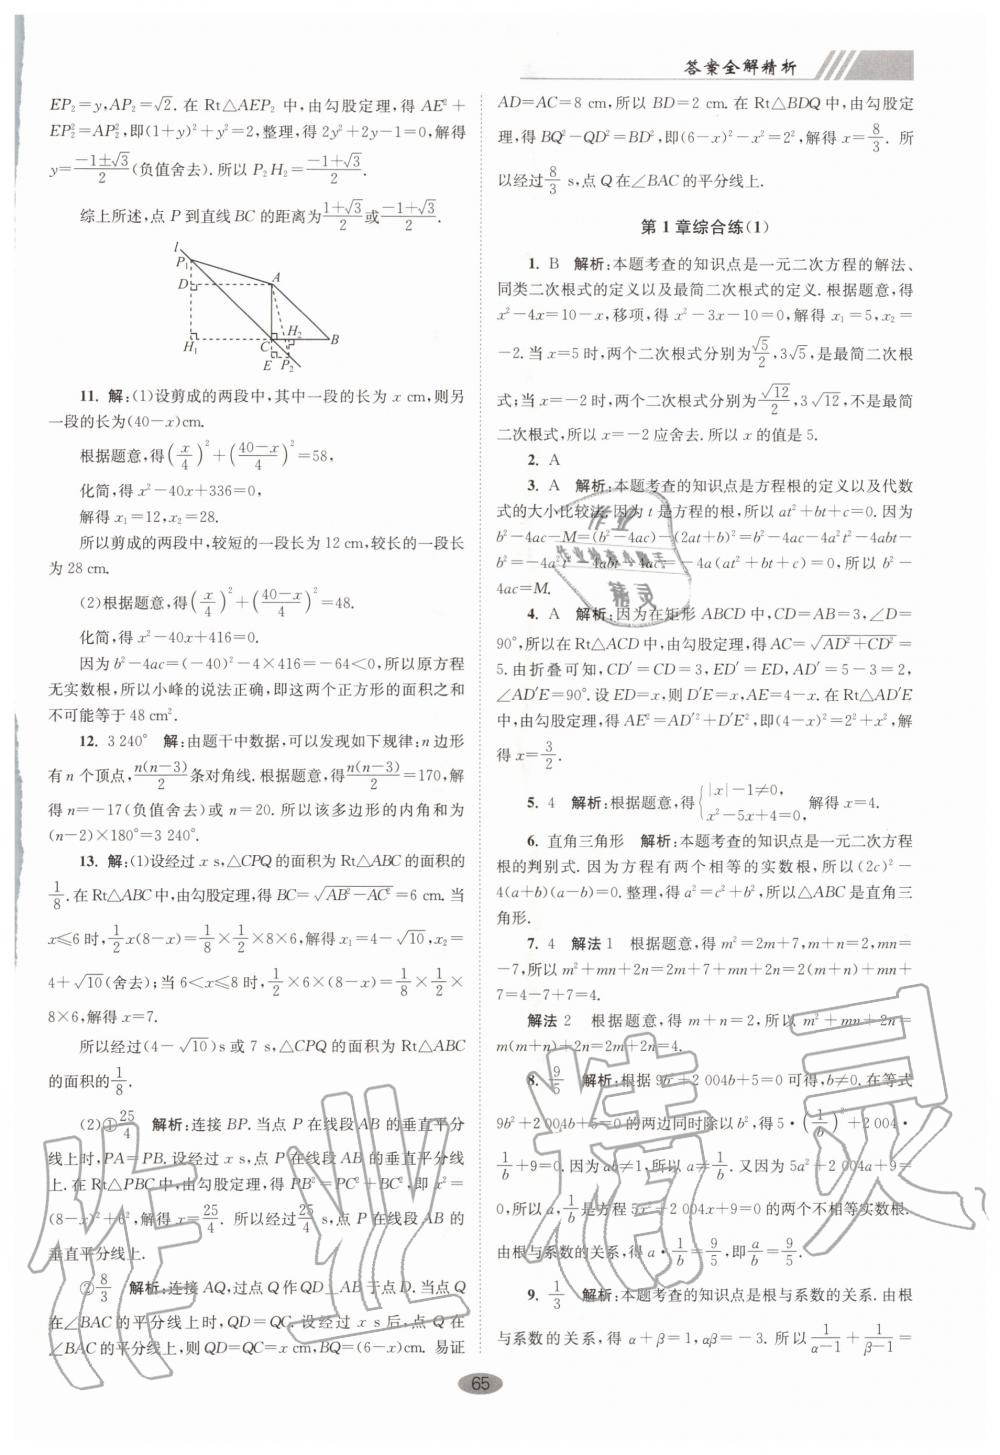 答案全解精析
EP₂=y,AP₂=√2. 在 Rt△AEP₂ 中,由勾股定理,得 AE²+
EP₂²=AP₂²,即(1+y)²+y²=2,整理,得 2y²+2y-1=0,解得
y=(-1±√3)/2(负值舍去). 所以 P₂H₂=(-1+√3)/2.
综上所述,点 P 到直线 BC 的距离为(1+√3)/2或(-1+√3)/2.
l
P₁
D
A
H₂
H₁
C
B
E
P₂
11. 解:(1)设剪成的两段中,其中一段的长为 x cm,则另
一段的长为(40-x)cm.
根据题意,得(x/4)²+((40-x)/4)²=58,
化简,得 x²-40x+336=0,
解得 x₁=12,x₂=28.
所以剪成的两段中,较短的一段长为 12 cm,较长的一段长
为 28 cm.
(2)根据题意,得(x/4)²+((40-x)/4)²=48.
化简,得 x²-40x+416=0.
因为 b²-4ac=(-40)²-4×416=-64<0,所以原方程
无实数根,所以小峰的说法正确,即这两个正方形的面积之和
不可能等于 48 cm².
12. 3 240° 解:由题干中数据,可以发现如下规律:n 边形
有 n 个顶点,n(n-3)/2条对角线. 根据题意,得n(n-3)/2=170,解
得 n=-17(负值舍去)或 n=20. 所以该多边形的内角和为
(n-2)×180°=3 240°.
13. 解:(1)设经过 x s,△CPQ 的面积为 Rt△ABC 的面积的
1/8. 在 Rt△ABC 中,由勾股定理,得 BC=√(AB²-AC²)=6 cm. 当
x≤6 时,1/2x(8-x)=1/8×1/2×8×6,解得 x₁=4-√10,x₂=
4+√10(舍去);当 6<x≤8 时,1/2×6×(8-x)=1/8×1/2×
8×6,解得 x=7.
所以经过(4-√10)s 或 7 s,△CPQ 的面积为 Rt△ABC
的面积的1/8.
(2)①25/4 解析:连接 BP. 当点 P 在线段 AB 的垂直平分
线上时,PA=PB. 设经过 x s,点 P 在线段 AB 的垂直平分线
上. 在 Rt△PBC 中,由勾股定理,得 PB²=PC²+BC²,即 x²=
(8-x)²+6²,解得 x=25/4. 所以经过25/4 s,点 P 在线段 AB 的
垂直平分线上.
②8/3 解析:连接 AQ,过点 Q 作 QD⊥AB 于点 D. 当点 Q
在∠BAC 的平分线上时,QD=QC. 设经过 x s 后,点 Q 在
∠BAC 的平分线上,则 QD=QC=x cm,BQ=(6-x)cm. 易证
AD=AC=8 cm,所以 BD=2 cm. 在 Rt△BDQ 中,由勾股定
理,得 BQ²-QD²=BD²,即(6-x)²-x²=2²,解得 x=8/3. 所
以经过8/3 s,点 Q 在∠BAC 的平分线上.
第 1 章综合练(1)
1. B 解析:本题考查的知识点是一元二次方程的解法、
同类二次根式的定义以及最简二次根式的定义. 根据题意,得
x²-4x=10-x,移项,得 x²-3x-10=0,解得 x₁=5,x₂=
-2. 当 x=5 时,两个二次根式分别为√5/2,3√5,是最简二次根
式;当 x=-2 时,两个二次根式分别为√12/2,3√12,不是最简
二次根式,所以 x=-2 应舍去. 所以 x 的值是 5.
2. A
3. A 解析:本题考查的知识点是方程根的定义以及代数
式的大小比较法. 因为 t 是方程的根,所以 at²+bt+c=0. 因为
b²-4ac-M=(b²-4ac)-(2at+b)²=b²-4ac-4a²t²-4abt-
b²=-4a²t²-4abt-4ac=-4a(at²+bt+c)=0,所以 b²-
4ac=M.
4. A 解析:因为在矩形 ABCD 中,CD=AB=3,∠D=
90°,所以在 Rt△ACD 中,由勾股定理,得 AC=√(AD²+CD²)=
5. 由折叠可知,CD′=CD=3,ED′=ED,AD′=5-3=2,
∠AD′E=90°. 设 ED=x,则 D′E=x,AE=4-x. 在 Rt△AD′E
中,由勾股定理,得 AE²=AD′²+D′E²,即(4-x)²=2²+x²,解
得 x=3/2.
5. 4 解析:根据题意,得{|x|-1≠0, x²-5x+4=0, 解得 x=4.
6. 直角三角形 解析:本题考查的知识点是一元二次方程
根的判别式. 因为方程有两个相等的实数根,所以(2c)²-
4(a+b)(a-b)=0. 整理,得 a²=c²+b²,所以△ABC 是直角三
角形.
7. 4 解法 1 根据题意,得 m²=2m+7,m+n=2,mn=
-7,所以 m²+mn+2n=2m+7+mn+2n=2(m+n)+mn+
7=4-7+7=4.
解法 2 根据题意,得 m+n=2,所以 m²+mn+2n=
m(m+n)+2n=2m+2n=4.
8. 9/5 解析:根据 9b²+2 004b+5=0 可得,b≠0. 在等式
9b²+2 004b+5=0 的两边同时除以 b²,得 5·(1/b)²+2 004·
1/b+9=0. 因为 ab≠1,所以 a≠1/b. 又因为 5a²+2 004a+9=
0,所以 a,1/b是方程 5x²+2 004x+9=0 的两个不相等实数根.
由根与系数的关系,得 a·1/b=9/5,即a/b=9/5.
9. 1/3 解析:本题考查的知识点是根与系数的关系. 由根
与系数的关系,得 α+β=1,αβ=-3. 所以1/(α-1)+1/(β-1)=
65
作业
作业检查小助手
精灵
作业精灵